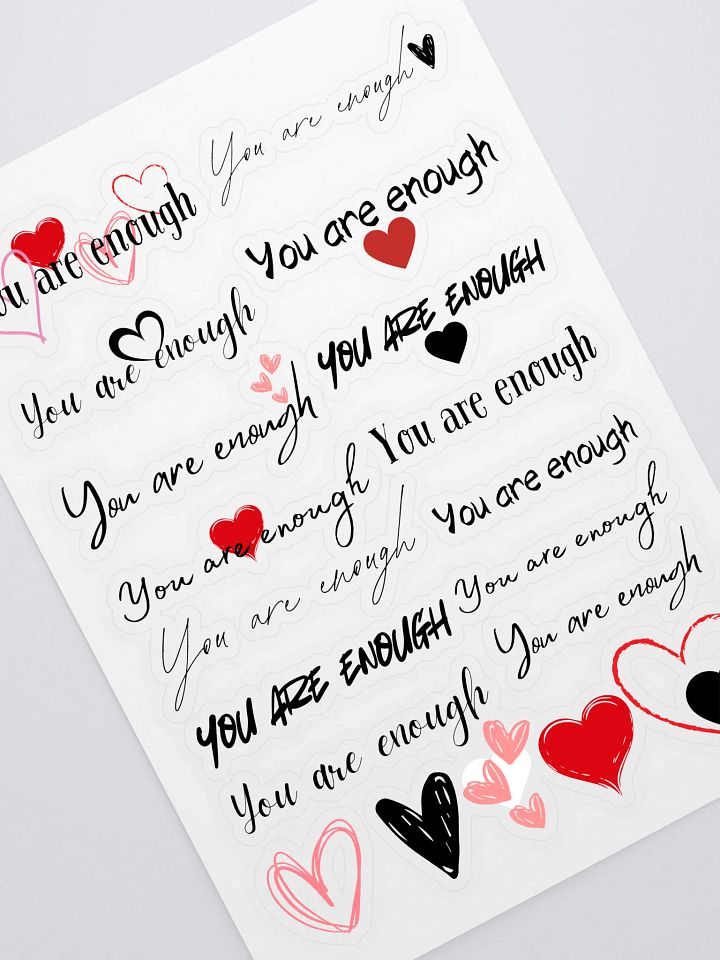 You are enough
ou are enough
You are enough
You are enough
YOU ARE ENOUGH
You are enough
You are enough
You are enough
You are enough
You are enough
You are enough
YOU ARE ENOUGH
You are enough
You are enough